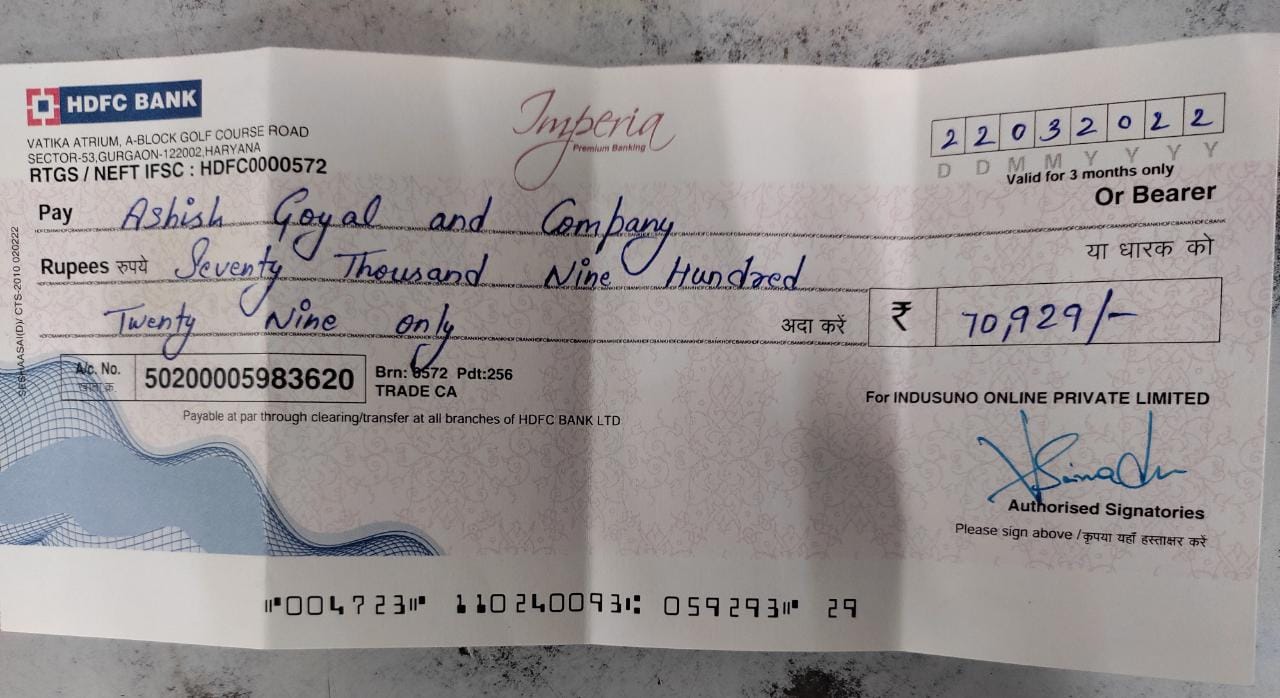 HDFC BANK
VATIKA ATRIUM, A-BLOCK GOLF COURSE ROAD
SECTOR-53,GURGAON-122002,HARYANA
RTGS / NEFT IFSC : HDFC0000572
Imperia
Premium Banking
22032022
D D M M Y Y Y Y
Valid for 3 months only
Pay Ashish Goyal and Company
Or Bearer
या धारक को
Rupees रुपये Seventy Thousand Nine Hundred
Twenty Nine only
अदा करें ₹ 70,929/-
A/c. No.
खाता क्र.
50200005983620
Brn: 0572 Pdt:256
TRADE CA
Payable at par through clearing/transfer at all branches of HDFC BANK LTD
For INDUSUNO ONLINE PRIVATE LIMITED
Authorised Signatories
Please sign above /कृपया यहाँ हस्ताक्षर करें
⑈004723⑈ 110240093⑆ 059293⑈ 29
CTS-2010 020222